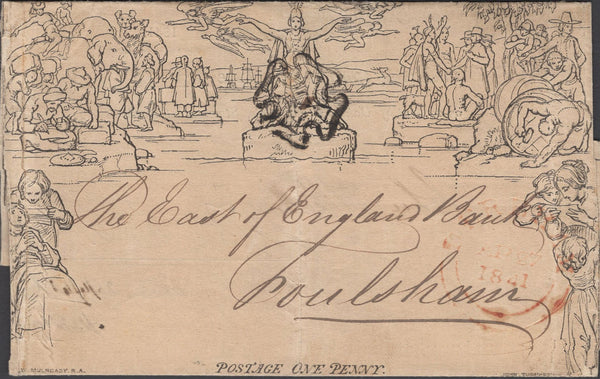 The East of England Bank
Foulsham
1841
W. MULREADY R.A.
POSTAGE ONE PENNY.
JOHN THOMPSON